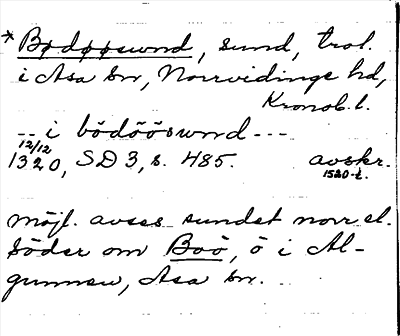 * Bødøøswnd, sund, trol.
i Asa sn, Norrvidinge hd,
Kronob. l.
-- i bödööswnd ---
12/12
1320, SD 3, s. 485. avskr.
1520-t.
möjl. avses sundet norr el.
söder om Boö, ö i Al-
gunnen, Asa sn.